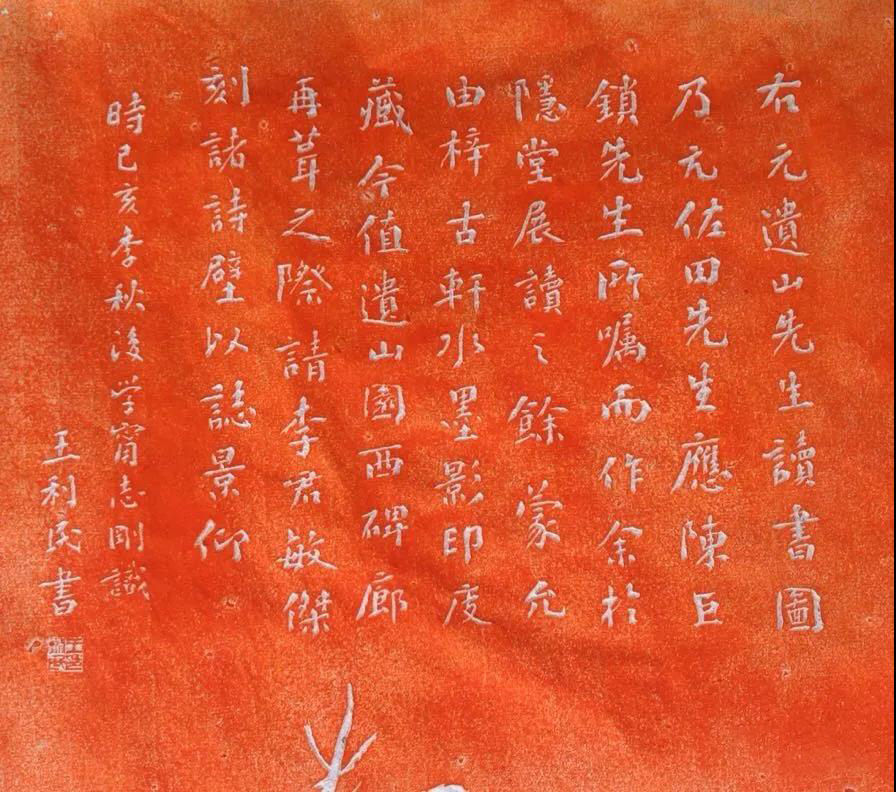 右元遺山先生讀書圖
乃元佐田先生應陳巨
鎖先生所嘱而作余於
隱堂展讀之餘蒙允
由梓古軒水墨影印度
藏今值遺山園西碑廊
再葺之際請李君敏傑
刻諸詩壁以誌景仰
時己亥季秋後学甯志剛識
王利民書